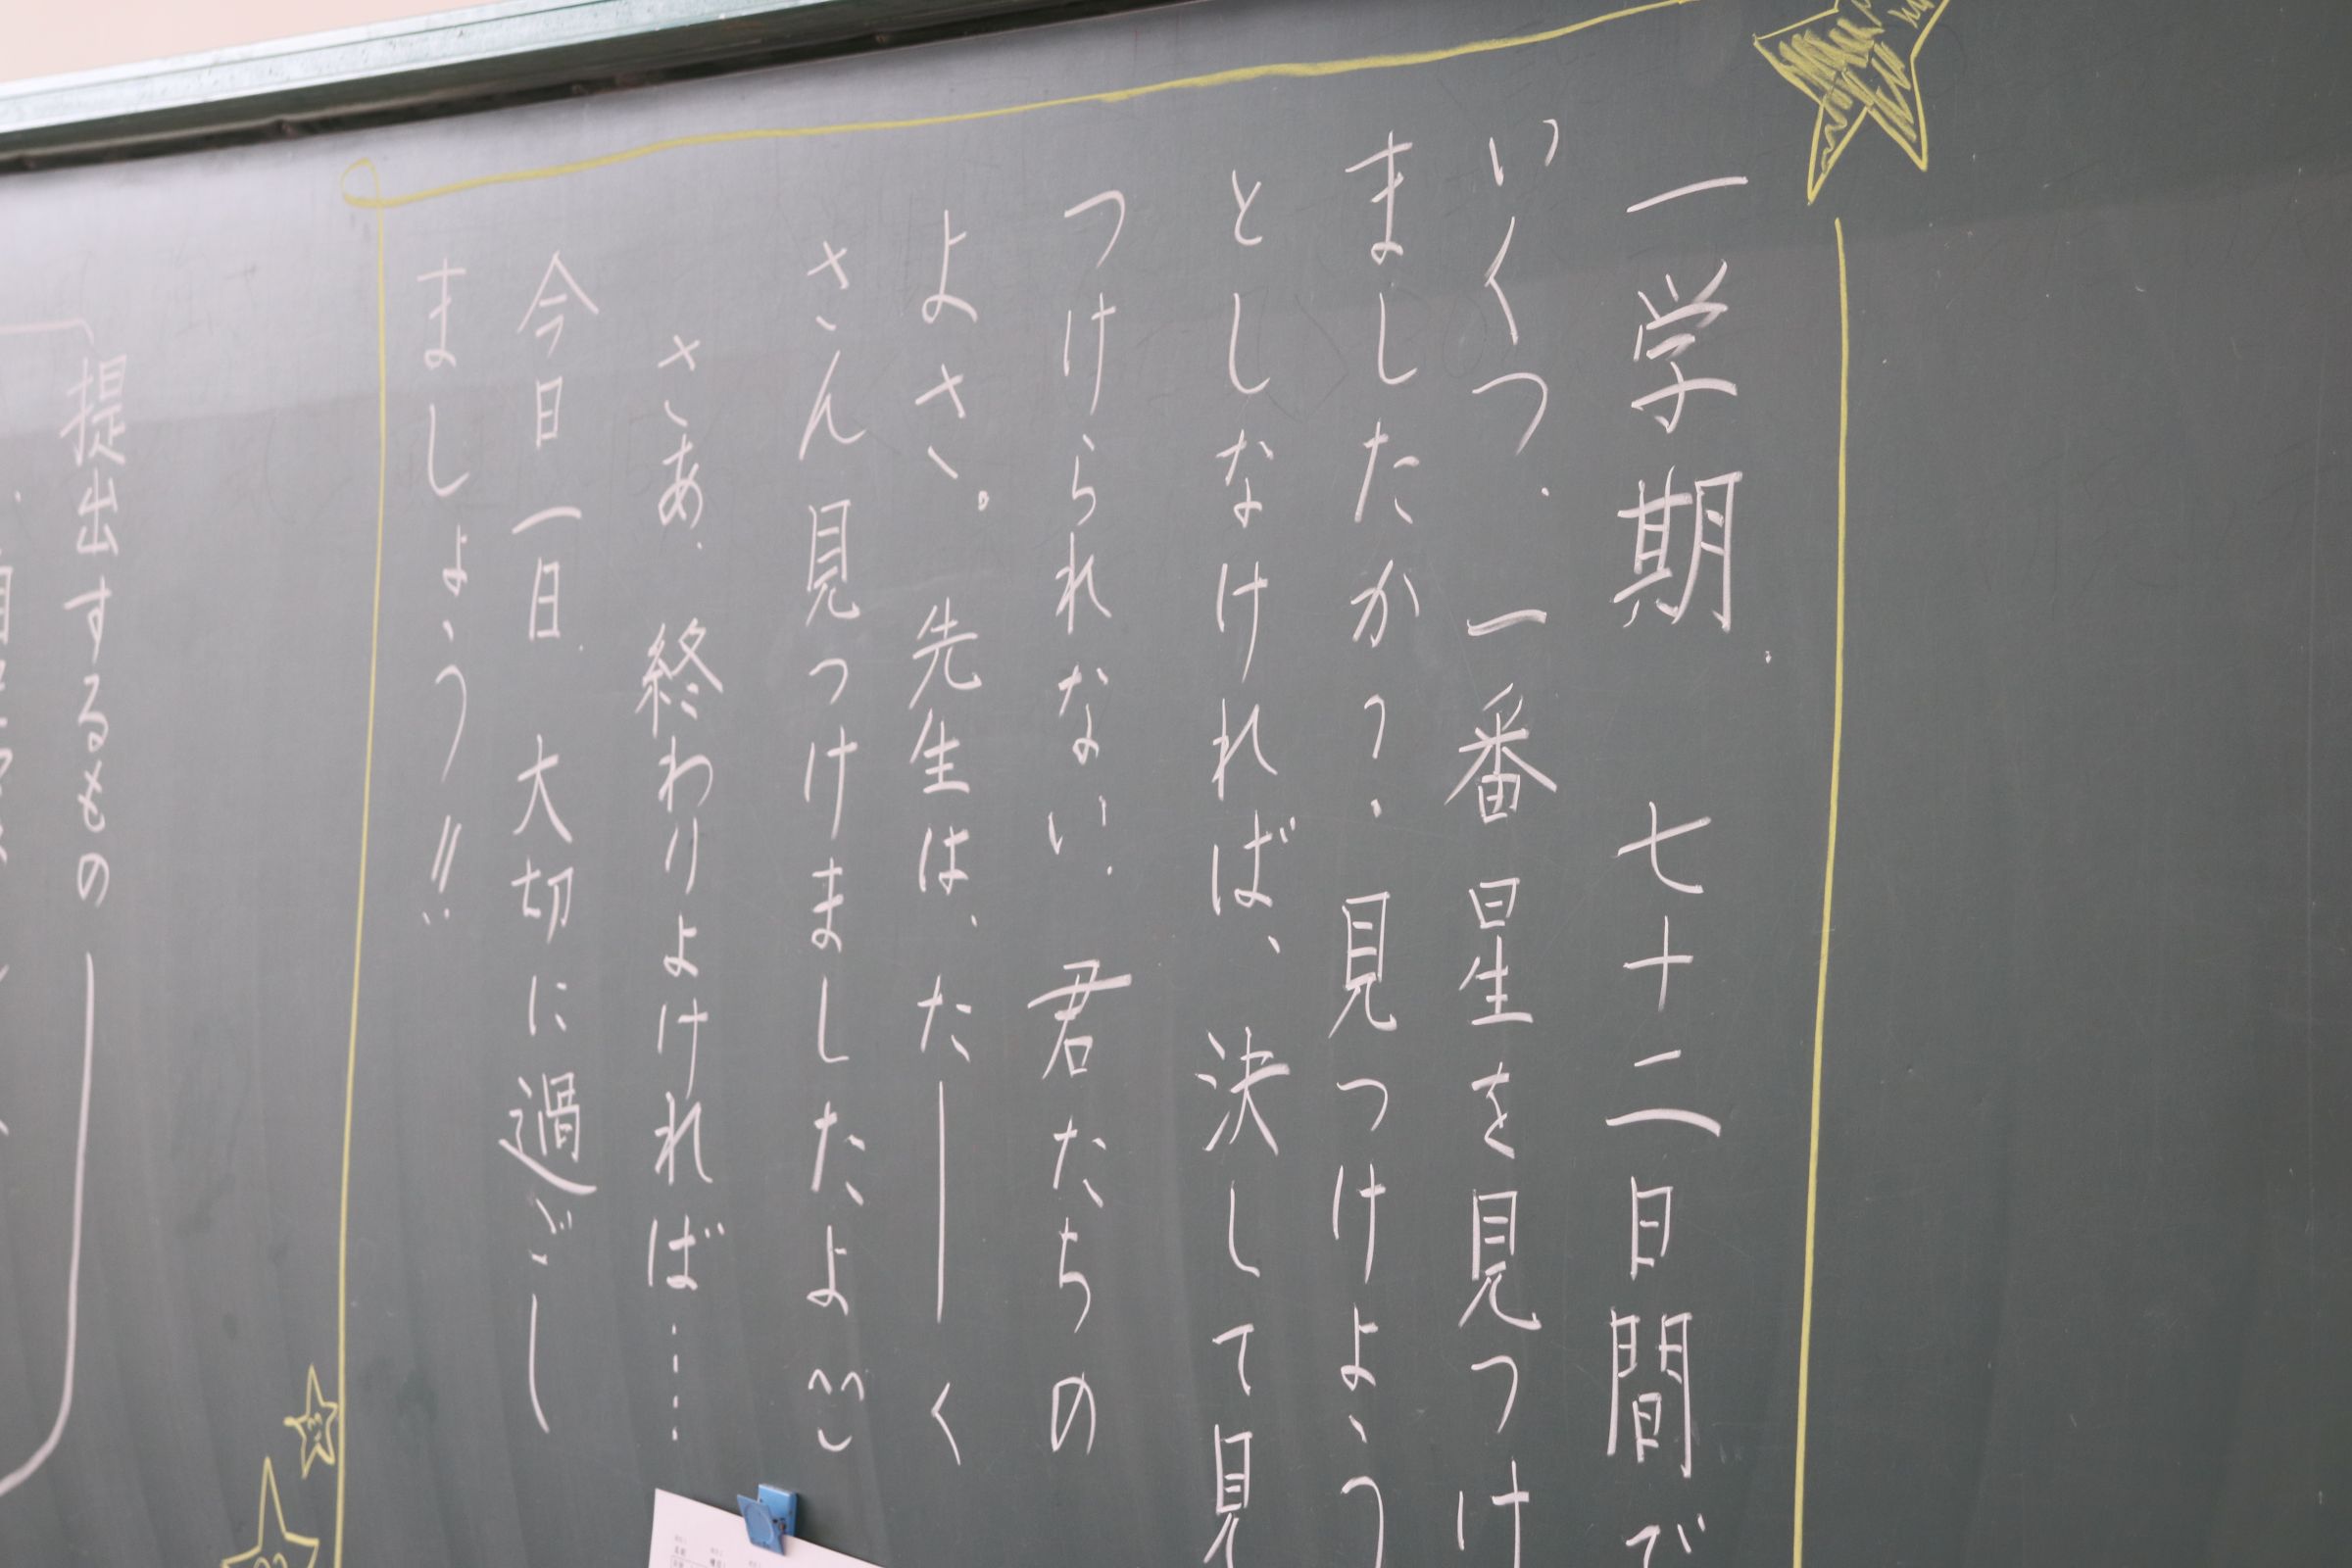 一学期 七十二日間で
いくつ、一番星を見つけ
ましたか？ 見つけよう
としなければ、決して見
つけられない、君たちの
よさ。先生は、たーく
さん見つけましたよ
さあ、終わりよければ……
今日一日、大切に過ごし
ましょう!!
提出するもの